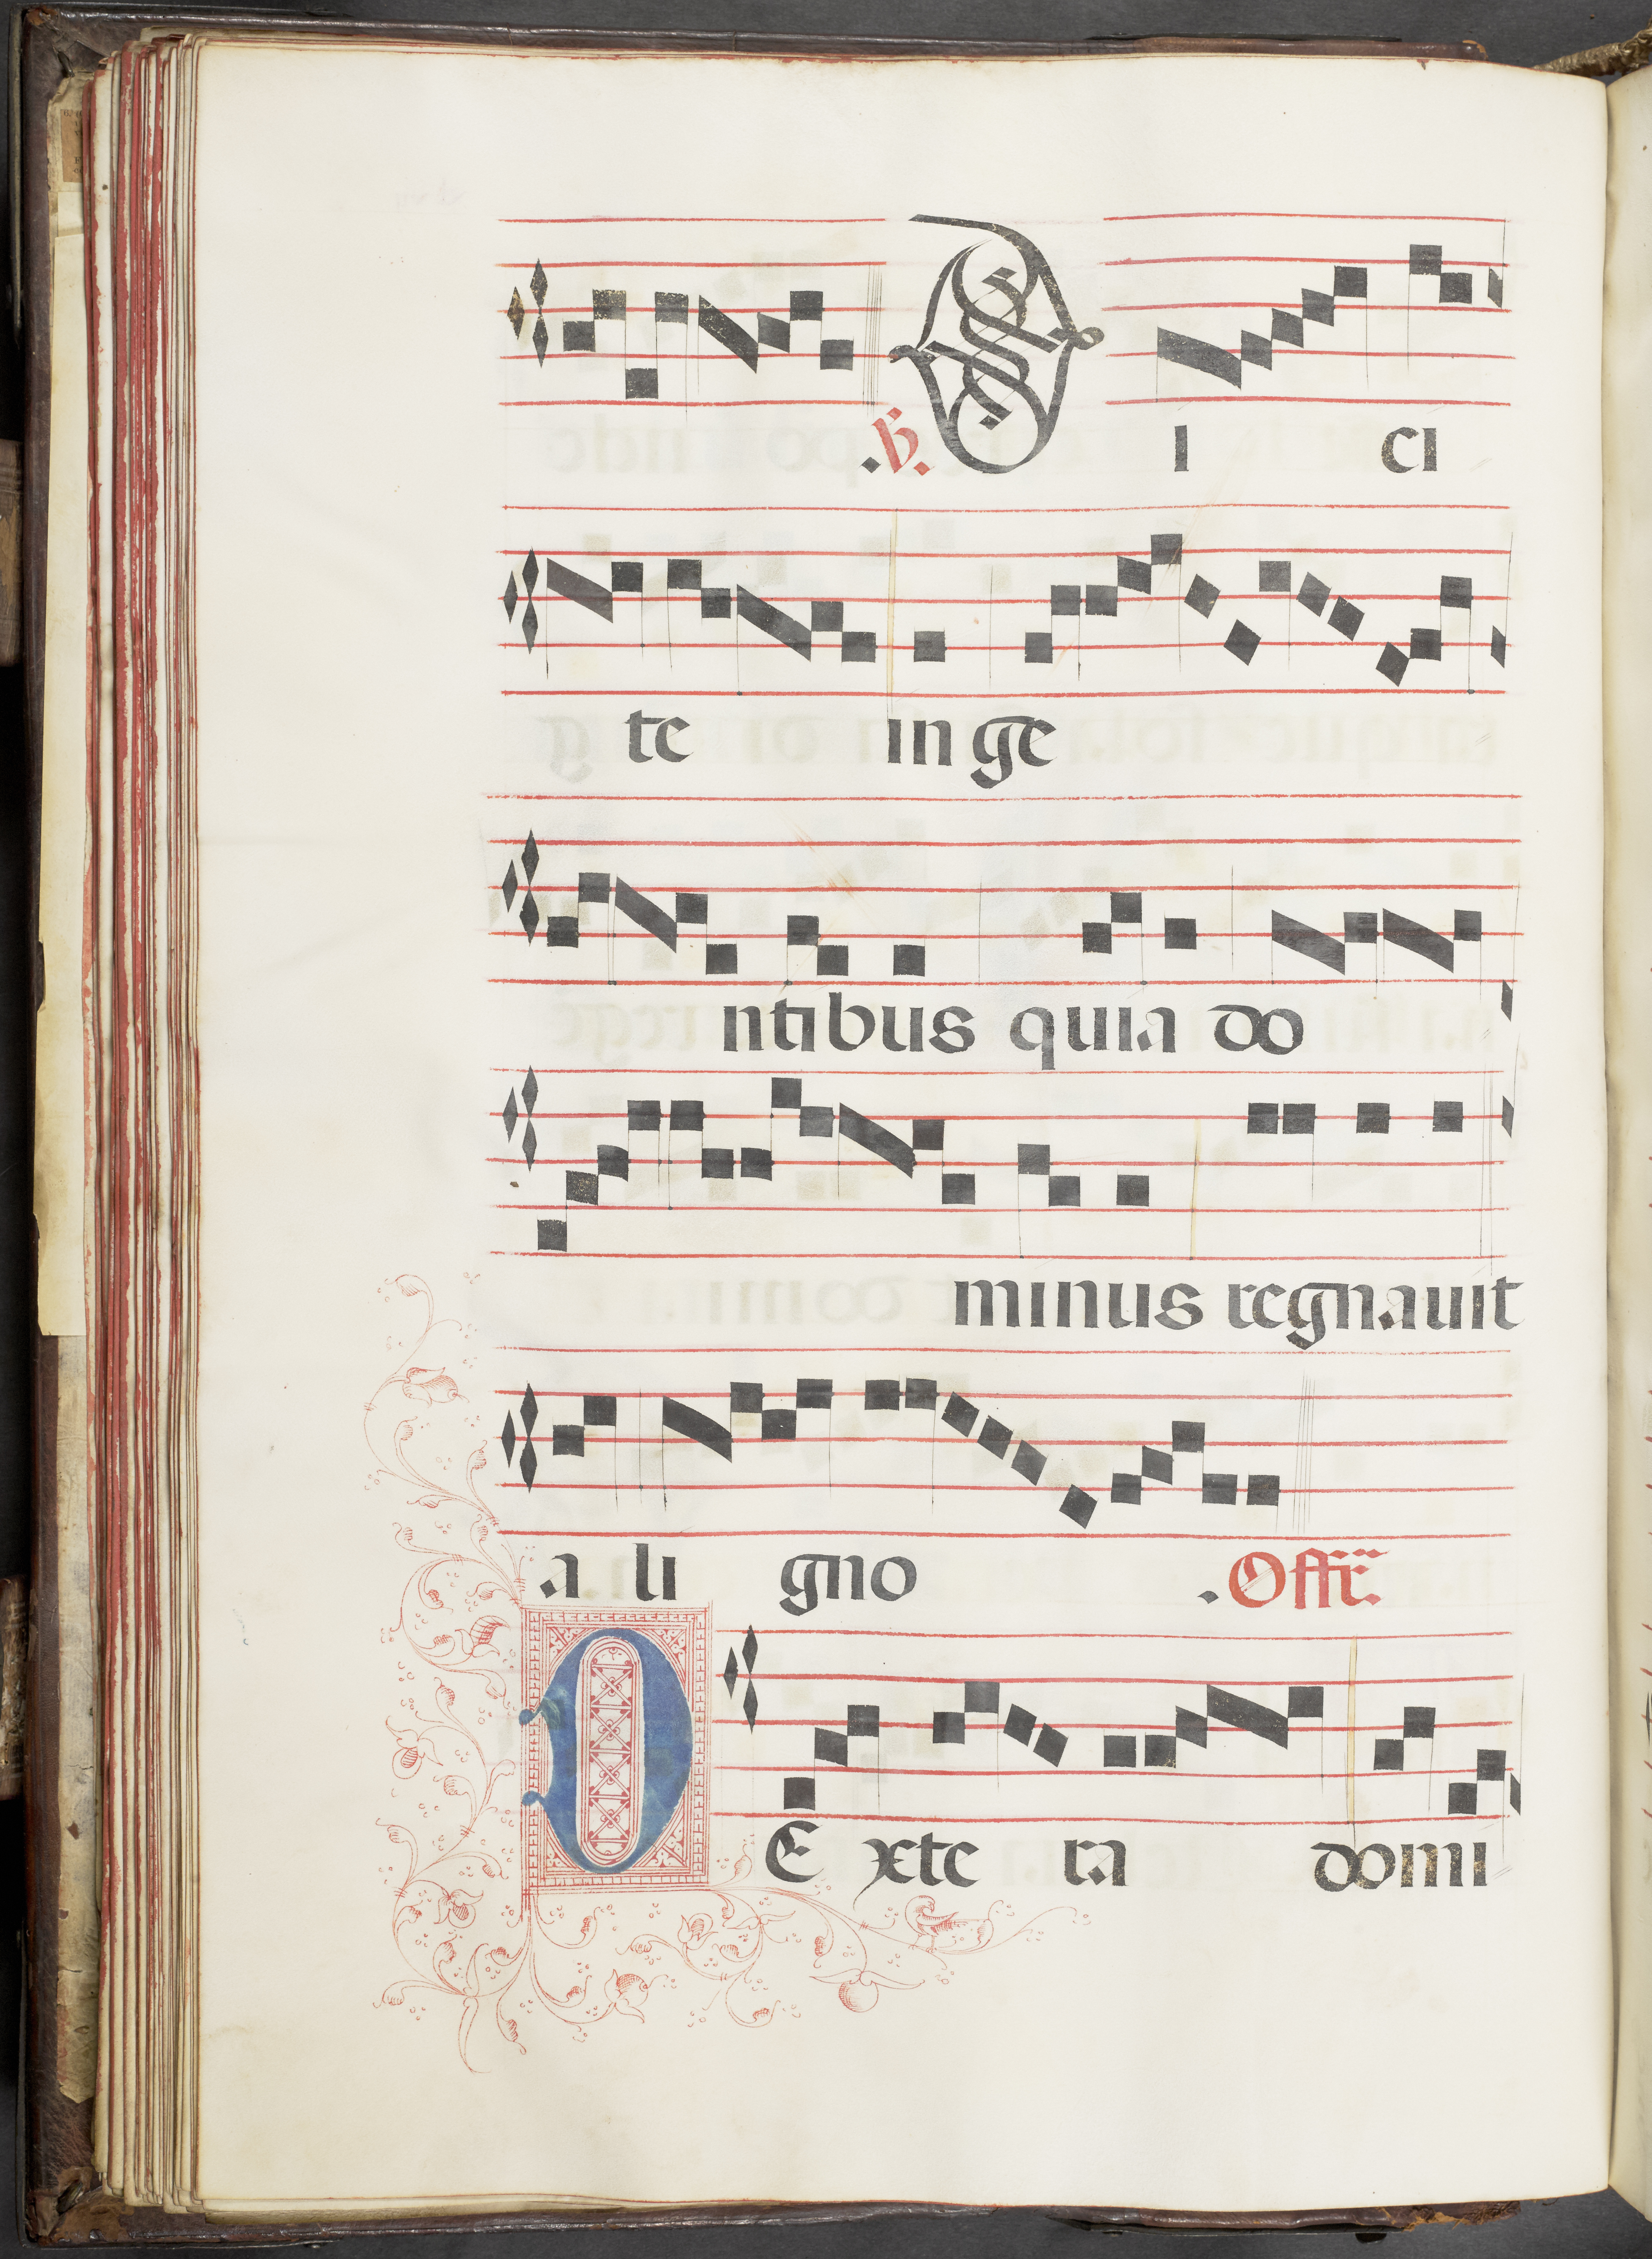 .℣. D I ci
te in ge
ntibus quia do
minus regnauit
a li gno .Offr̄.
D E xte ra domi